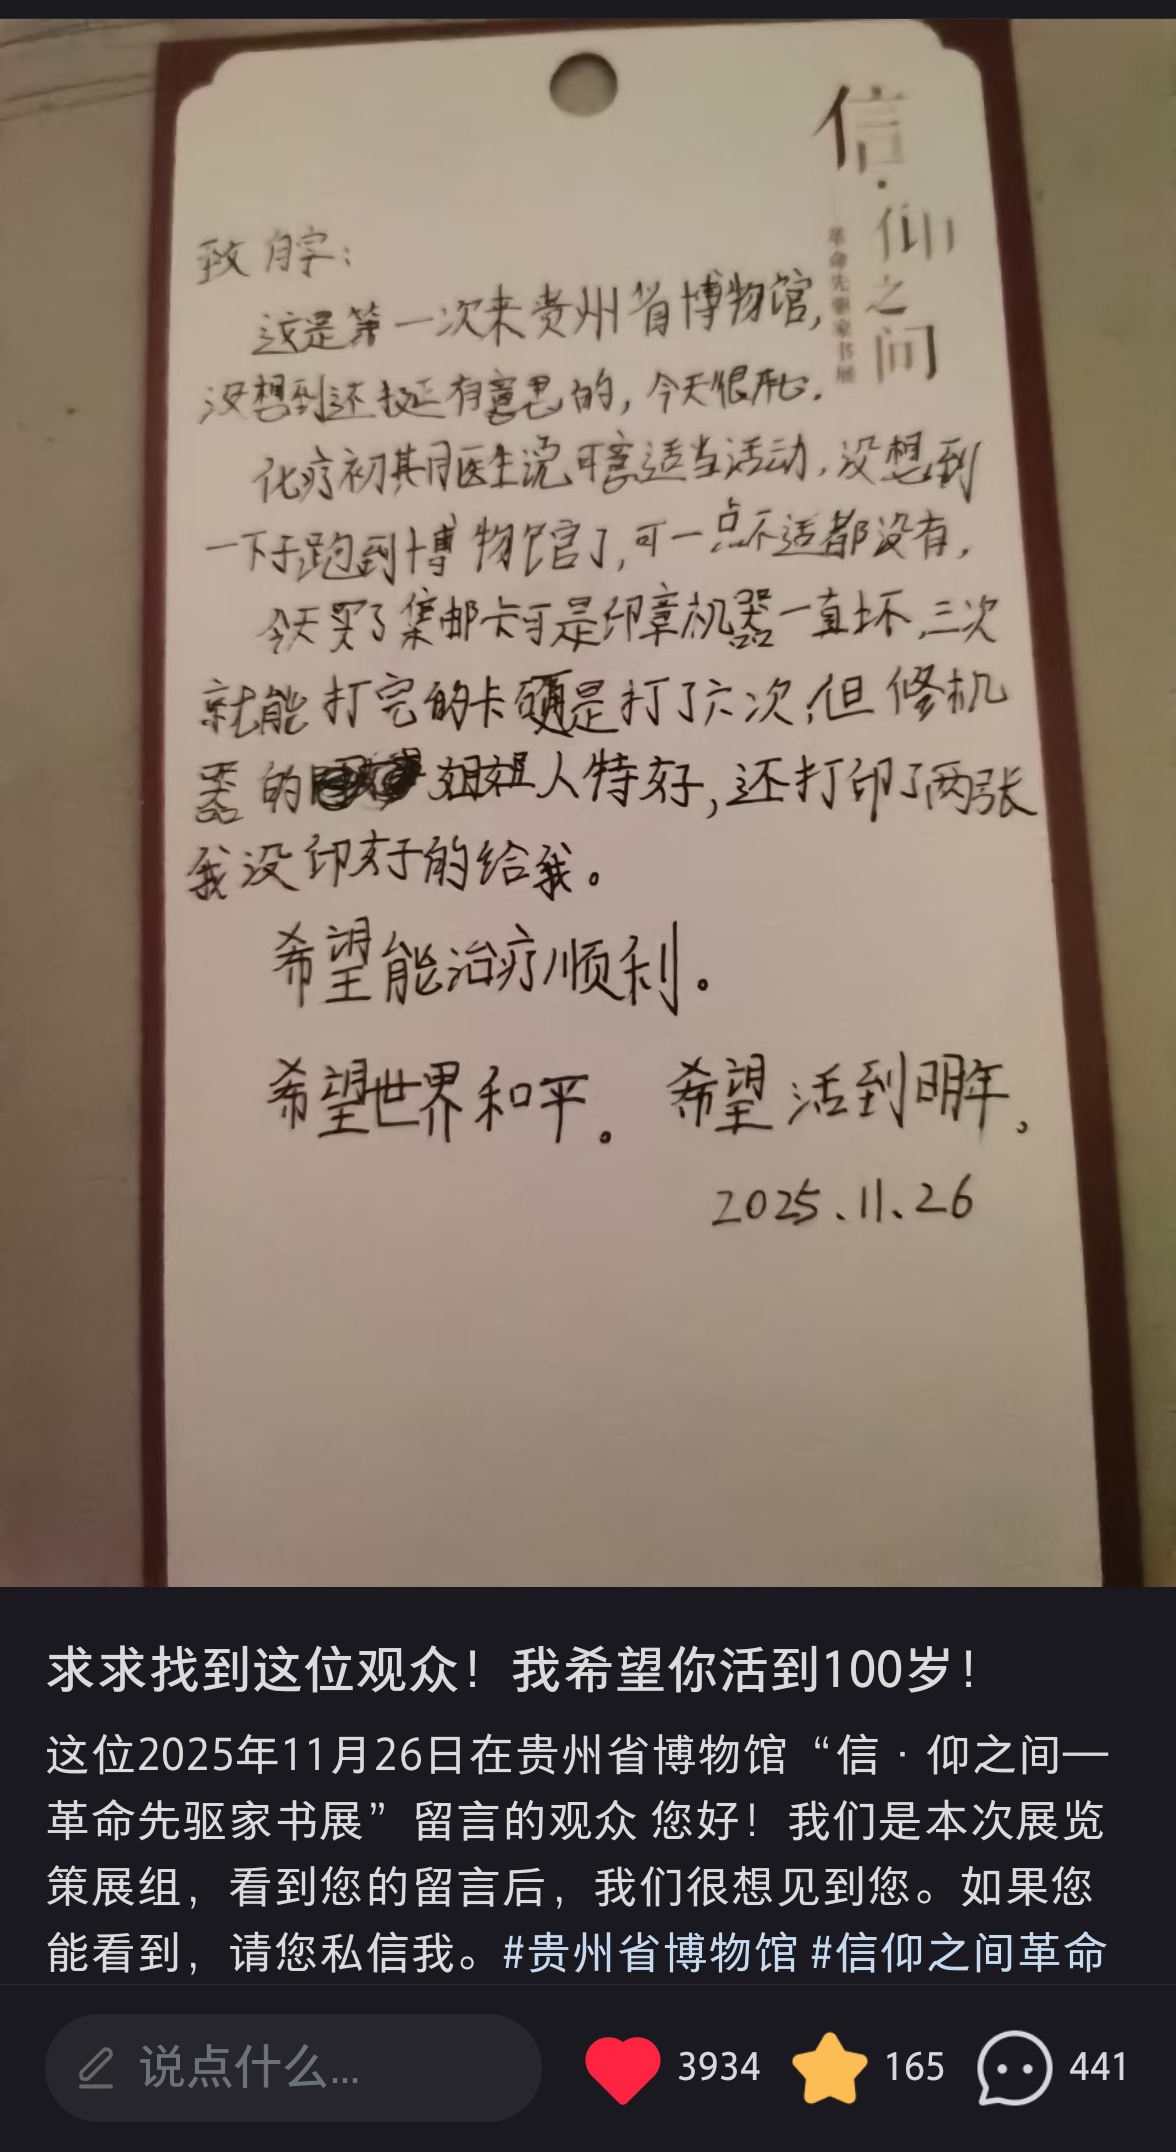 信·仰之间
革命先驱家书展
致自己:
这是第一次来贵州省博物馆,
没想到还挺有意思的,今天很开心.
化疗初期医生说可意适当活动,没想到
一下子跑到博物馆了,可一点不适都没有,
今天买了集邮卡可是印章机器一直坏,三次
就能打完的卡硬是打了六次,但修机
器的 姐姐人特好,还打印了两张
我没印好的给我。
希望能治疗顺利。
希望世界和平。 希望活到明年、
2025、11、26
求求找到这位观众！我希望你活到100岁！
这位2025年11月26日在贵州省博物馆“信·仰之间—
革命先驱家书展”留言的观众 您好！我们是本次展览
策展组，看到您的留言后，我们很想见到您。如果您
能看到，请您私信我。#贵州省博物馆 #信仰之间革命
说点什么...
3934
165
441